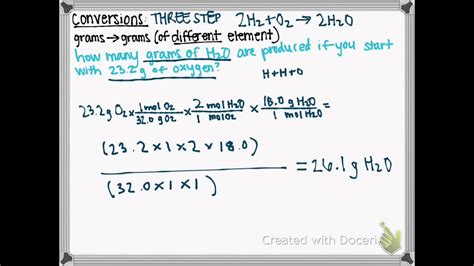 Conversions: THREE STEP 2H₂+O₂→2H₂O
grams→grams (of different element)
how many grams of H₂O are produced if you start
with 23.2 g of oxygen?
H+H+O
23.2g O₂ x 1 mol O₂/32.0 g O₂ x 2 mol H₂O/1 mol O₂ x 18.0 g H₂O/1 mol =
(23.2 x 1 x 2 x 18.0)
(32.0 x 1 x 1)
= 26.1 g H₂O
Created with Doceri